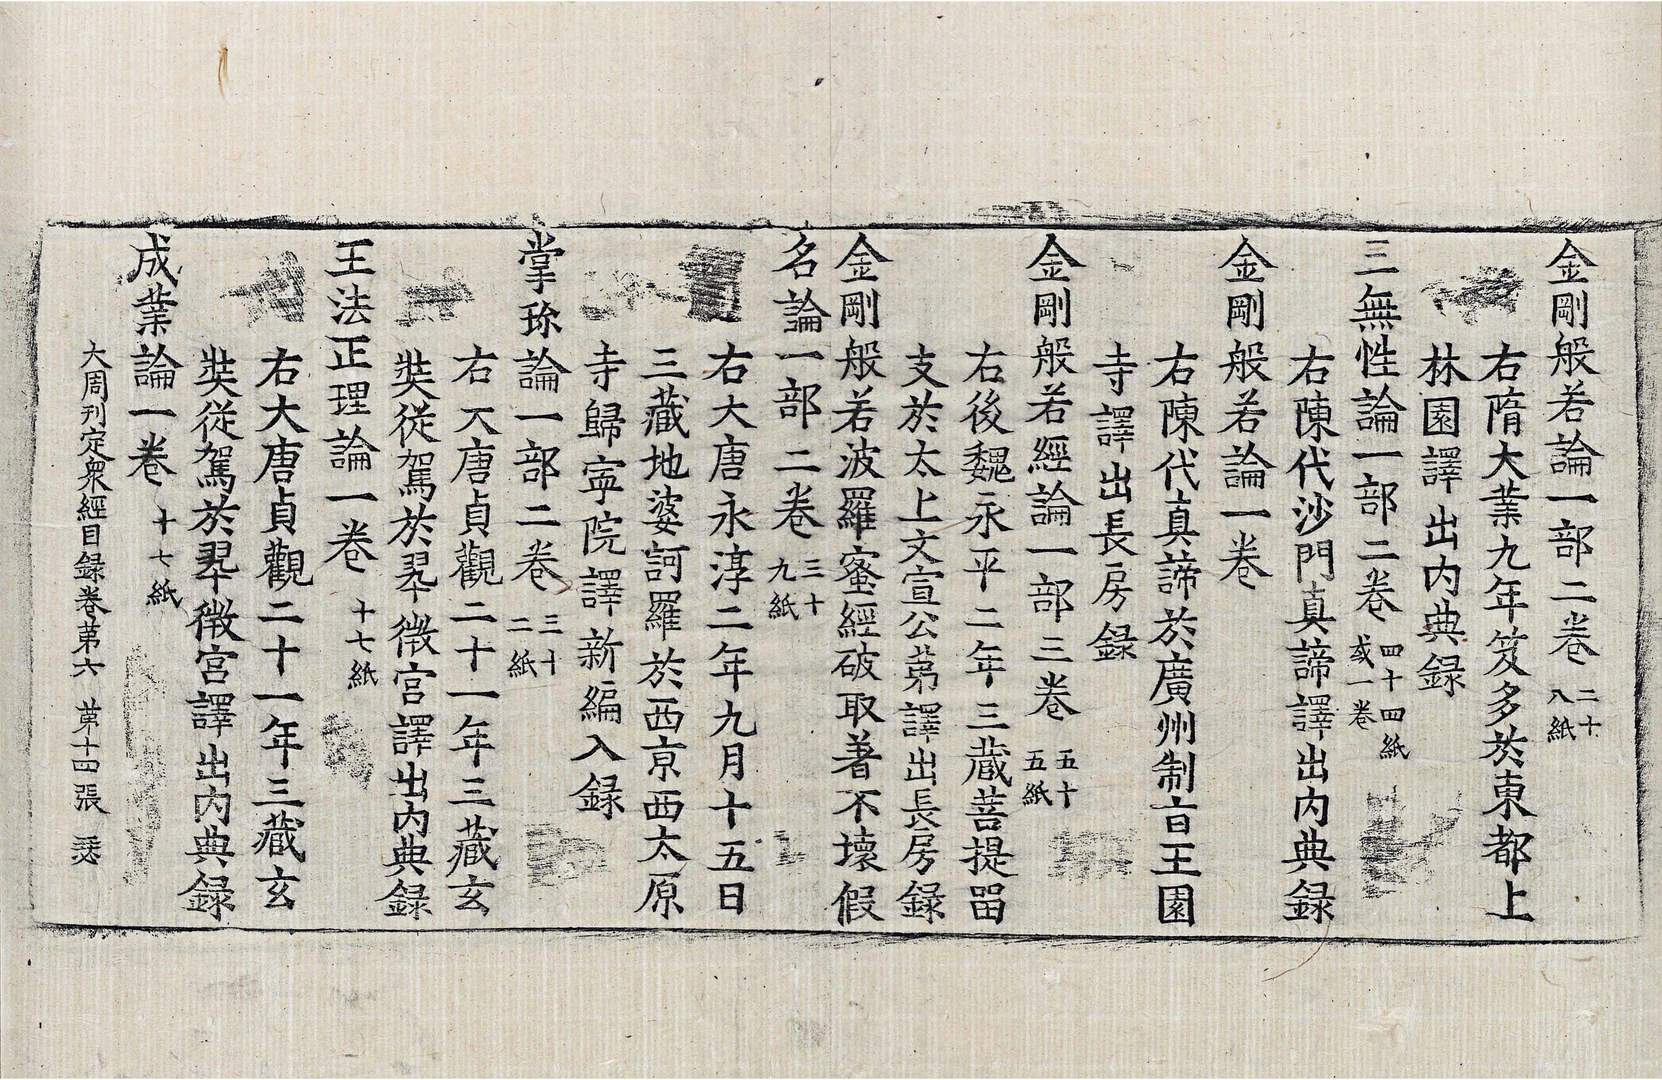 金剛般若論一部二卷 二十八紙
右隋大業九年笈多於東都上
林園譯出内典録
三無性論一部二卷 四十四紙或一卷
右陳代沙門真諦譯出内典録
金剛般若論一卷
右陳代真諦於廣州制旨王園
寺譯出長房録
金剛般若經論一部三卷 五十五紙
右後魏永平二年三藏菩提留
支於太上文宣公第譯出長房録
金剛般若波羅蜜經破取著不壞假
名論一部二卷 三十九紙
右大唐永淳二年九月十五日
三藏地婆訶羅於西京西太原
寺歸寧院譯新編入録
掌珎論一部二卷 三十二紙
右大唐貞觀二十一年三藏玄
奘從駕於翠微宫譯出内典録
王法正理論一卷 十七紙
右大唐貞觀二十一年三藏玄
奘從駕於翠微宫譯出内典録
成業論一卷 十七紙
大周刊定衆經目録卷苐六 苐十四張